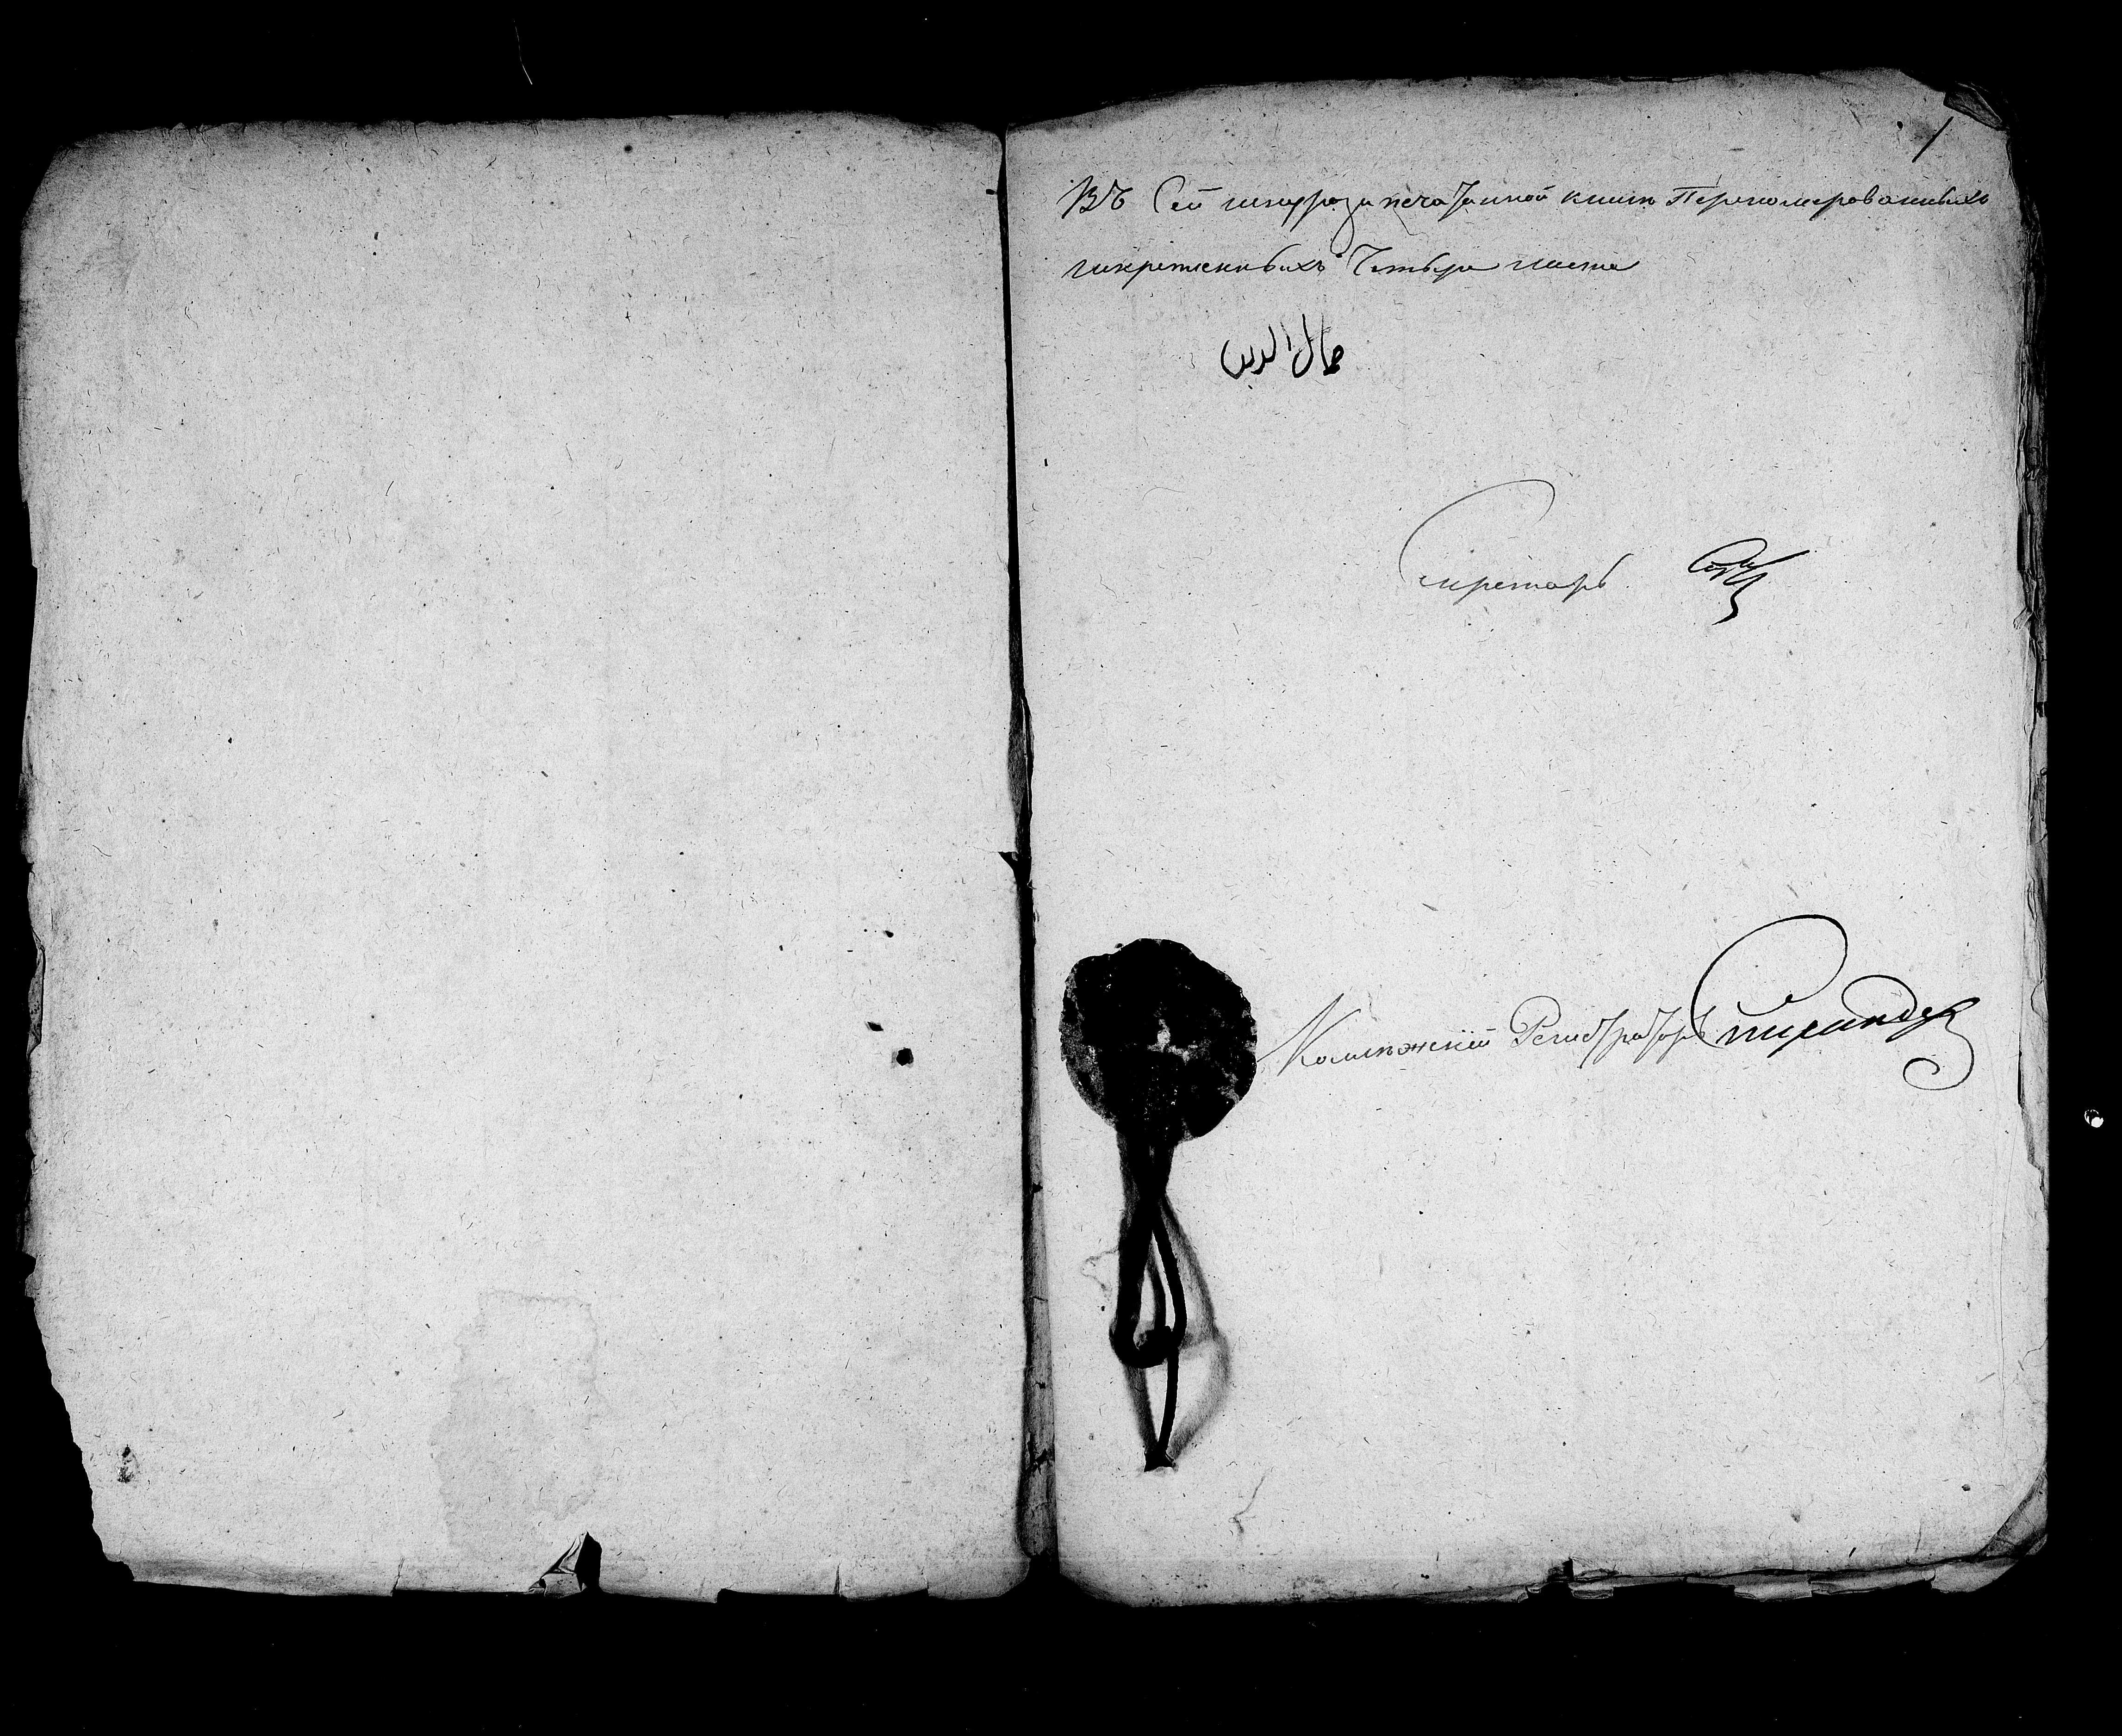 1
Въ Сей шнурозапечатанной книге Переномерованныхъ
искрепленныхъ Четыре листа
جمال الدين
Секретарь
Коллежский Регистраторъ